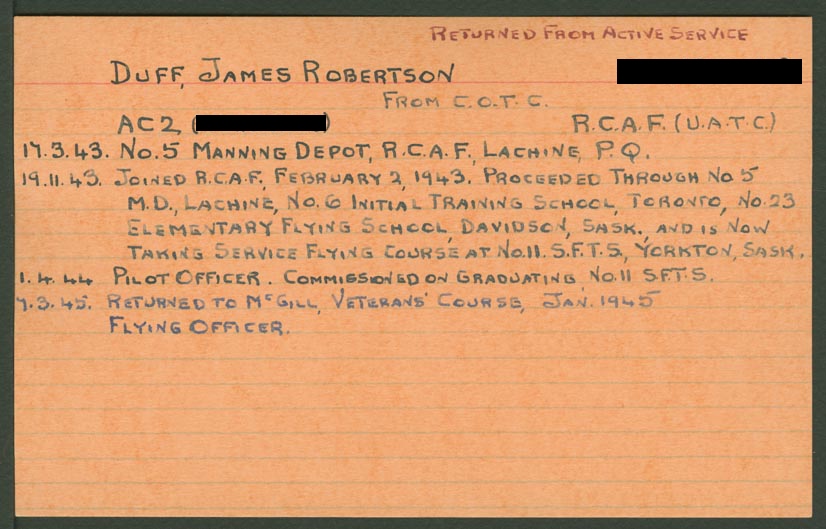 RETURNED FROM ACTIVE SERVICE
DUFF, JAMES ROBERTSON
FROM C.O.T.C.
AC2 ( ) R.C.A.F. (U.A.T.C.)
17.3.43. No.5 MANNING DEPOT, R.C.A.F., LACHINE, P.Q.
19.11.43. JOINED R.C.A.F., FEBRUARY 2, 1943. PROCEEDED THROUGH No 5
M.D., LACHINE, No. 6 INITIAL TRAINING SCHOOL, TORONTO, No. 23
ELEMENTARY FLYING SCHOOL, DAVIDSON, SASK., AND IS NOW
TAKING SERVICE FLYING COURSE AT No.11. S.F.T.S., YORKTON, SASK.
1.4.44 PILOT OFFICER. COMMISSIONED ON GRADUATING, No.11 S.F.T.S.
7.3.45. RETURNED TO McGILL, VETERANS' COURSE, JAN. 1945
FLYING OFFICER.